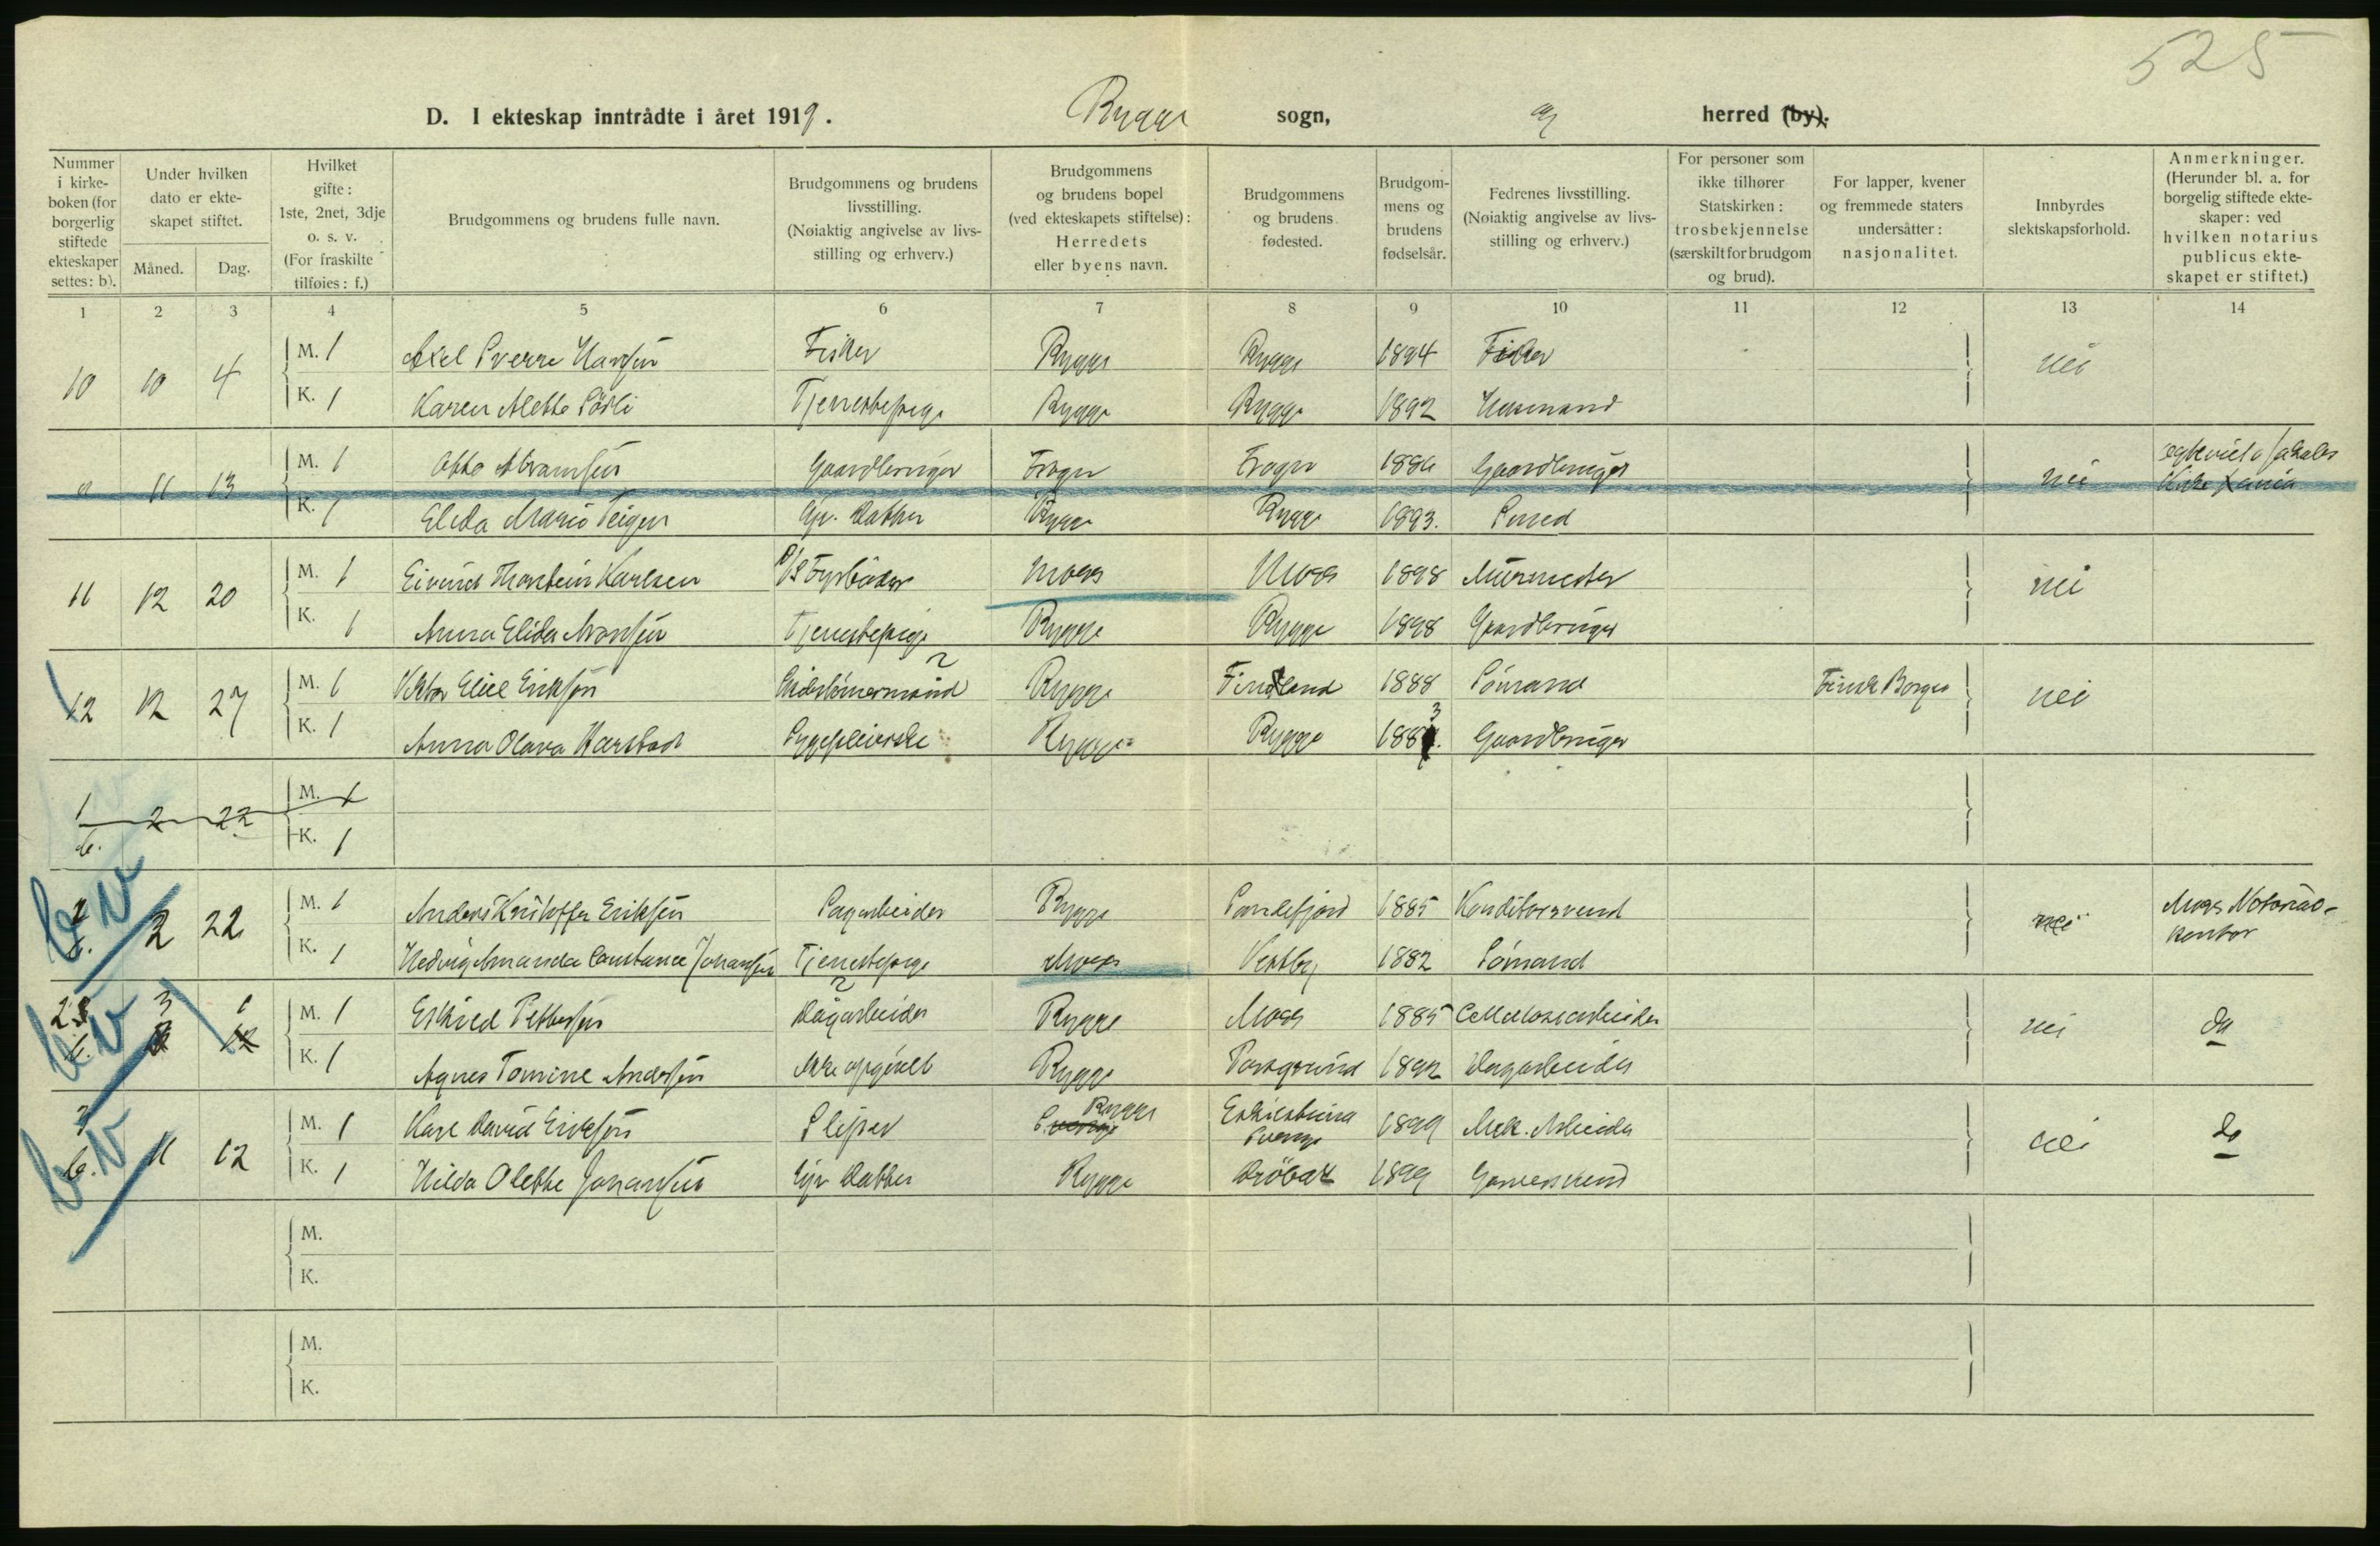 525
D. I ekteskap inntrådte i året 1919. Rygge sogn, herred (by).
Nummer i kirkeboken (for borgerlig stiftede ekteskaper settes: b).
Under hvilken dato er ekteskapet stiftet.
Måned. Dag.
Hvilket gifte: 1ste, 2net, 3dje o. s. v. (For fraskilte tilføies: f.)
Brudgommens og brudens fulle navn.
Brudgommens og brudens livsstilling. (Nøiaktig angivelse av livsstilling og erhverv.)
Brudgommens og brudens bopel (ved ekteskapets stiftelse): Herredets eller byens navn.
Brudgommens og brudens fødested.
Brudgommens og brudens fødselsår.
Fedrenes livsstilling. (Nøiaktig angivelse av livsstilling og erhverv.)
For personer som ikke tilhører Statskirken: trosbekjennelse (særskilt for brudgom og brud).
For lapper, kvener og fremmede staters undersåtter: nasjonalitet.
Innbyrdes slektskapsforhold.
Anmerkninger. (Herunder bl. a. for borgelig stiftede ekteskaper: ved hvilken notarius publicus ekteskapet er stiftet.)
1 2 3 4 5 6 7 8 9 10 11 12 13 14
10 10 4 M. 1 Axel Sverre Hansen Fisker Rygge Rygge 1894 Fisker nei
K. 1 Karen Alette Tjenestepige Rygge Rygge 1892 Husmand
11 13 M. 1 Otto Abramsen Gaardbruger Frogn Frogn 1886 Gaardbruger nei
K. 1 Elida Marie Teigen Hjv. Datter Rygge Rygge 1893.
11 12 20 M. 1 Eivind Thorstein Karlsen Fyrbøder Moss Moss 1898 Murmester nei
K. 1 Anna Elida Aronsen Tjenestepige Rygge Rygge 1898 Gaardbruger
12 12 27 M. 1 Viktor Eliel Eriksen Rygge Finland 1888 Sømand Finsk Borger nei
K. 1 Anna Olava Karstad Sygepleierske Rygge Rygge 1883 Gaardbruger
1 b. 2 22 M. 1
K. 1
b. 2 22 M. 1 Anders Kristoffer Eriksen Sagarbeider Rygge Sandefjord 1885 Konditorsvend nei Moss Notorial-kontor
K. 1 Hedvig Amanda Constance Johansen Tjenestepige Moss Vestby 1882 Sømand
2 b. 3 1 M. 1 Eskild Pettersen Dagarbeider Rygge Moss 1885 Cellulosearbeider nei do
K. 1 Agnes Tomine Andersen Ikke opgivet Rygge Porsgrund 1892 Dagarbeider
3 b. 11 12 M. 1 Karl David Eriksen Sliper Sverige Rygge Eskilstuna Sverige 1899 Mek. Arbeider nei do
K. 1 Hilda Olette Johansen Hjv Datter Rygge Drøbak 1899 Garversvend
M.
K.
M.
K.